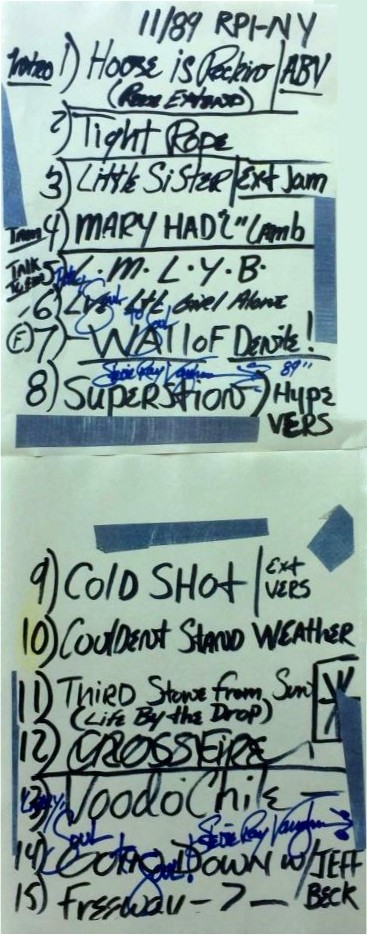 11/89 RPI-NY
Intro 1) House is Rockin | ABV
2) Tight Rope
3) Little SiSTER | Ext Jam
4) MARY HAD 2" Lamb
Talk 5) L. M. L. Y. B.
6) Girl Alone
(F) 7) - WAll oF Denile!
Stevie Ray Vaughan 89"
8) SuPERStion) Hype
VERS
9) Cold SHot | Ext
VERS
10) CoulDent Stand WEATHER
11) Third Stone from Sun
(Life By the Drop)
12) CROSSFiRE
13) VoodoChile -
Soul to Soul! Stevie Ray Vaughan
14) Going Down w/ JEFF
BECK
15) Freeway - 7 -